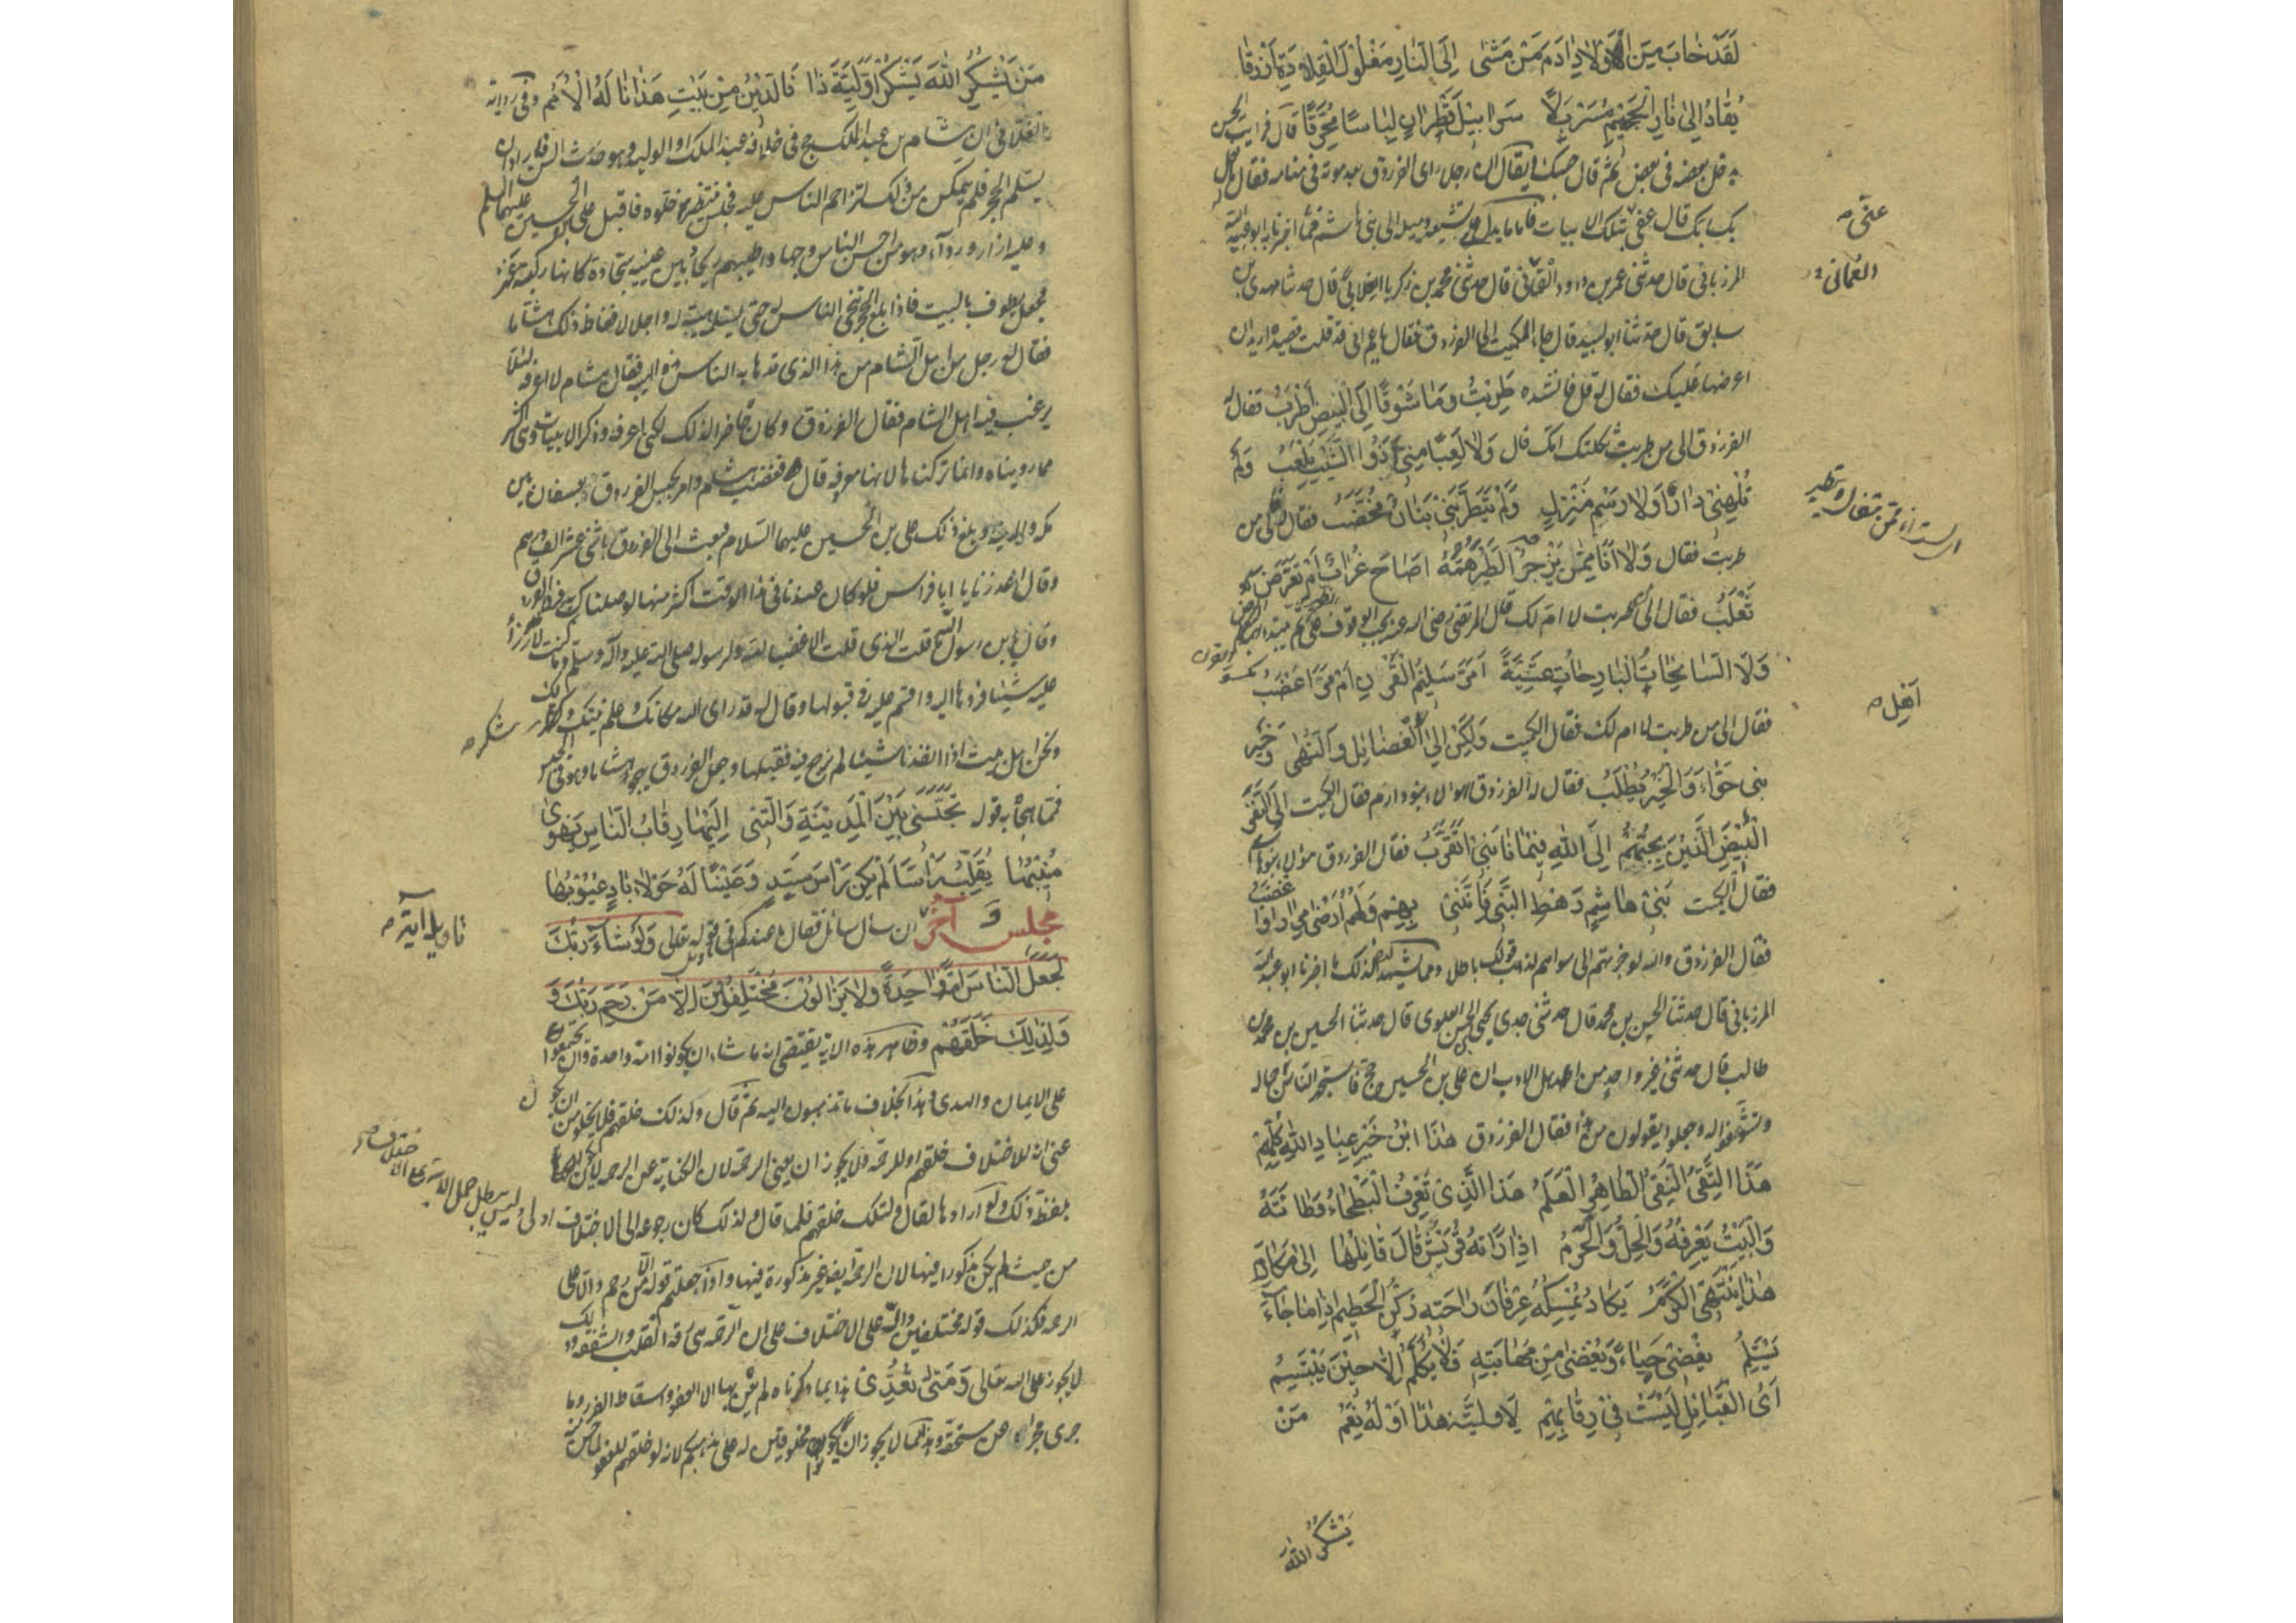 لَقَدْ خَابَ مِنَ اَوْلَادِ اٰدَمَ مَنْ مَشٰى اِلَى النَّارِ مَغْلُوْلَ الْقِلَادَةِ اَزْرَقَا
يُقَادُ اِلٰى نَارِ الْجَحِيْمِ مُسَرْبَلًا سَرَابِيْلَ قَطِرَانٍ لِبَاسًا مُحَرَّقًا قال فرايت الحسن
يدخل بعضه فى بعض ثم قال حسبك ويقال ان رجلا راى الفرزدق بعد موته فى منامه فقال ما فعل
بك ربك قال عفى بتلك الابيات فاما ما يدل على تشيعه وميله الى بنى هاشم فما اخبرنا به ابو عبيد الله
عنى
المرزبانى قال حدثنى عمر بن داود العمانى قال حدثنى محمد بن زكريا الغلابى قال حدثنا مهدى بن
العمانى
سابق قال حدثنا ابو لبيد قال جاء الكميت الى الفرزدق فقال يا عم انى قد قلت قصيدة اريد ان
اعرضها عليك فقال له قل فانشده طَرِبْتُ وَمَا شَوْقًا اِلَى الْبِيْضِ اَطْرَبُ فقال له
الفرزدق الى من طربت ثكلتك امك قال وَلَا لَعِبًا مِنِّىْ اَذُو الشَّيْبِ يَلْعَبُ وَلَمْ
تُلْهِنِىْ دَارٌ وَلَا رَسْمُ مَنْزِلٍ وَلَمْ يَتَطَرَّبْنِىْ بَنَانٌ مُخَضَّبُ فقال الى من
طربت فقال وَلَا اَنَا مِمَّنْ يَزْجُرُ الطَّيْرَ هَمُّهُ اَصَاحَ غُرَابٌ اَمْ تَعَرَّضَ
ثَعْلَبُ فقال الى من طربت لا ام لك قال المرتضى رضى الله عنه يجب الوقوف على
وَلَا السَّانِحَاتُ الْبَارِحَاتُ عَشِيَّةً اَمَرَّ سَلِيْمُ الْقَرْنِ اَمْ مَرَّ اَعْضَبُ
فقال الى من طربت لا ام لك فقال الكميت وَلٰكِنْ اِلٰى اَهْلِ الْفَضَائِلِ وَالنُّهٰى وَخَيْرِ
اَهْلِ
بنى حَوَّاءَ وَالْخَيْرُ يُطْلَبُ فقال له الفرزدق هولاء بنو دارم فقال الكميت اِلَى النَّفَرِ
الْبِيْضِ الَّذِيْنَ بِحُبِّهِمْ اِلَى اللهِ فِيْمَا نَابَنِىْ اَتَقَرَّبُ فقال الفرزدق هولاء بنو هاشم
فقال الكميت بَنِىْ هَاشِمٍ رَهْطِ النَّبِىِّ فَاِنَّنِىْ بِهِمْ وَلَهُمْ اَرْضٰى مِرَارًا وَ اَغْضَبُ
فقال الفرزدق والله لو جزتهم الى سواهم لذهب قولك باطلا ومما يشهد لذلك ما اخبرنا ابو عبيد الله
المرزبانى قال حدثنا الحسن بن محمد قال حدثنى جدى يحيى بن الحسن العلوى قال حدثنا الحسين بن محمد بن
طالب قال حدثنى غير واحد من اهل الادب ان على بن الحسين حج فاستجهر الناس جماله
وتشوفوا له وجعلوا يقولون من هذا فقال الفرزدق هٰذَا ابْنُ خَيْرِ عِبَادِ اللهِ كُلِّهِمْ
هٰذَا التَّقِىُّ النَّقِىُّ الطَّاهِرُ الْعَلَمُ هٰذَا الَّذِىْ تَعْرِفُ الْبَطْحَاءُ وَطْاَتَهُ
وَالْبَيْتُ يَعْرِفُهُ وَالْحِلُّ وَالْحَرَمُ اِذَا رَاَتْهُ قُرَيْشٌ قَالَ قَائِلُهَا اِلٰى مَكَارِمِ
هٰذَا يَنْتَهِى الْكَرَمُ يَكَادُ يُمْسِكُهُ عِرْفَانَ رَاحَتِهِ رُكْنُ الْحَطِيْمِ اِذَا مَا جَاءَ
يَسْتَلِمُ يُغْضِىْ حَيَاءً وَيُغْضٰى مِنْ مَهَابَتِهِ فَلَا يُكَلَّمُ اِلَّا حِيْنَ يَبْتَسِمُ
اَىُّ الْقَبَائِلِ لَيْسَتْ فِىْ رِقَابِهِمْ لِاَوَّلِيَّةِ هٰذَا اَوْ لَهُ نِعَمُ مَنْ
يَشْكُرِ اللهَ
مَنْ يَشْكُرِ اللهَ يَشْكُرْ اَوَّلِيَّةَ ذَا فَالدِّيْنُ مِنْ بَيْتِ هٰذَا نَالَهُ الْاُمَمُ وفى رواية
الغلابى ان هشام بن عبد الملك حج فى خلافة عبد الملك او الوليد وهو حدث السن فاراد ان
يستلم الحجر فلم يتمكن من ذلك لتزاحم الناس عليه فجلس ينتظر خلوة فاقبل على بن الحسين عليهما السلم
وعليه ازار ورداء وهو من احسن الناس وجها واطيبهم ريحا بين عينيه سجادة كانها ركبة عنز
فجعل يطوف بالبيت فاذا بلغ الحجر تنحى الناس له حتى يستلمه هيبة له واجلالا فغاظ ذلك هشاما
فقال له رجل من اهل الشام من هذا الذى قد هابه الناس هذه الهيبة فقال هشام لا اعرفه لئلا
يرغب فيه اهل الشام فقال الفرزدق وكان حاضرا لذلك لكنى اعرفه وذكر الابيات وهى اكثر
مما رويناه وانما تركناها لانها معروفة قال فغضب هشام وامر بحبس الفرزدق بعسفان بين
مكة والمدينة وبلغ ذلك على بن الحسين عليهما السلام فبعث الى الفرزدق باثنى عشر الف درهم
وقال اعذرنا يا ابا فراس فلو كان عندنا فى هذا الوقت اكثر منها لوصلناك به فردها الفرزدق
وقال يا بن رسول الله ما قلت الذى قلت الا غضبا لله ولرسوله صلى الله عليه وآله وسلم وما كنت لارزأ
عليه شيئا فردها اليه واقسم عليه فى قبولها وقال له قد راى الله مكانك وعلم نيتك وشكر لك
شكر
ونحن اهل بيت اذا انفذنا شيئا لم نرجع فيه فقبلها وجعل الفرزدق يهجو هشاما وهو فى الحبس
فمما هجأ به قوله تَحْبِسُنِىْ بَيْنَ الْمَدِيْنَةِ وَالَّتِىْ اِلَيْهَا رِقَابُ النَّاسِ يَهْوِىْ
مُنِيْبُهَا يُقَلِّبُ رَاْسًا لَمْ يَكُنْ رَاْسَ سَيِّدٍ وَعَيْنًا لَهُ حَوْلَاءَ بَادٍ عُيُوْبُهَا
مجلس آخر ان سال سائل فقال ما عندكم فى تاويل قوله تعالى وَلَوْ شَاءَ رَبُّكَ
تاويل آية
لَجَعَلَ النَّاسَ اُمَّةً وَاحِدَةً وَلَا يَزَالُوْنَ مُخْتَلِفِيْنَ اِلَّا مَنْ رَحِمَ رَبُّكَ وَ
وَلِذٰلِكَ خَلَقَهُمْ وظاهر هذه الاية يقتضى انه ما شاء ان يكونوا امة واحدة وان يجتمعوا
على الايمان والهدى وهذا بخلاف ما تذهبون اليه ثم قال ولذلك خلقهم فلا يخلو من ان يكون
عنى انه للاختلاف خلقهم او للرحمة فلا يجوز ان يعنى الرحمة لان الكناية عن الرحمة لا تكون
بلفظة ذلك ولو ارادها لقال ولتلك خلقهم فلما قال ولذلك كان رجوعه الى الاختلاف اولى وليس يبطل حمل الاية على الاختلاف
من حيث لم يكن مذكورا فيها لان الرحمة ايضا غير مذكورة فيها واذا جعلتم قوله الا من رحم دالا على
الرحمة فكذلك قوله مختلفين دال على الاختلاف على ان الرحمة هى رقة القلب والشفقة وذلك
لا يجوز على الله تعالى وَمَتٰى تُعُدِّىَ هذا بما ذكرناه لم يعن بها الا العفو واسقاط الضرر وما
جرى مجراه عن مستحقه وهذا مما لا يجوز ان يكونوا مخلوقين له على مذهبكم لانه لو خلقهم للعفو لما حسن منه